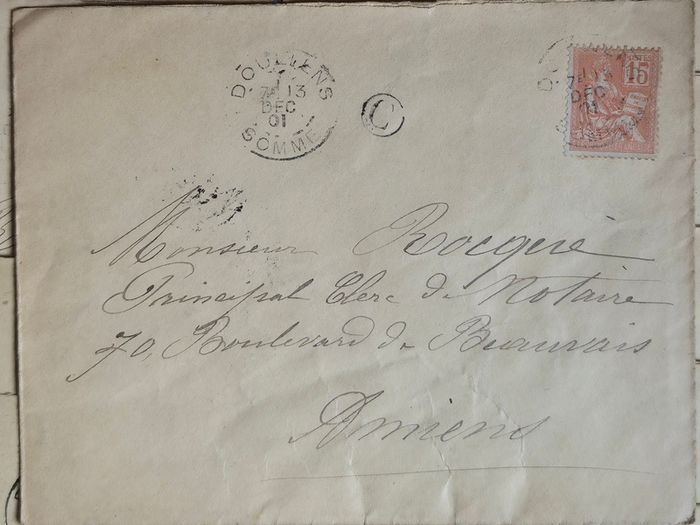 DOULLENS
7E 13
DEC
01
SOMME
C
15
DEC
01
Monsieur Rocqueé
Principal Clerc de Notaire
70, Boulevard de Beauvais
Amiens